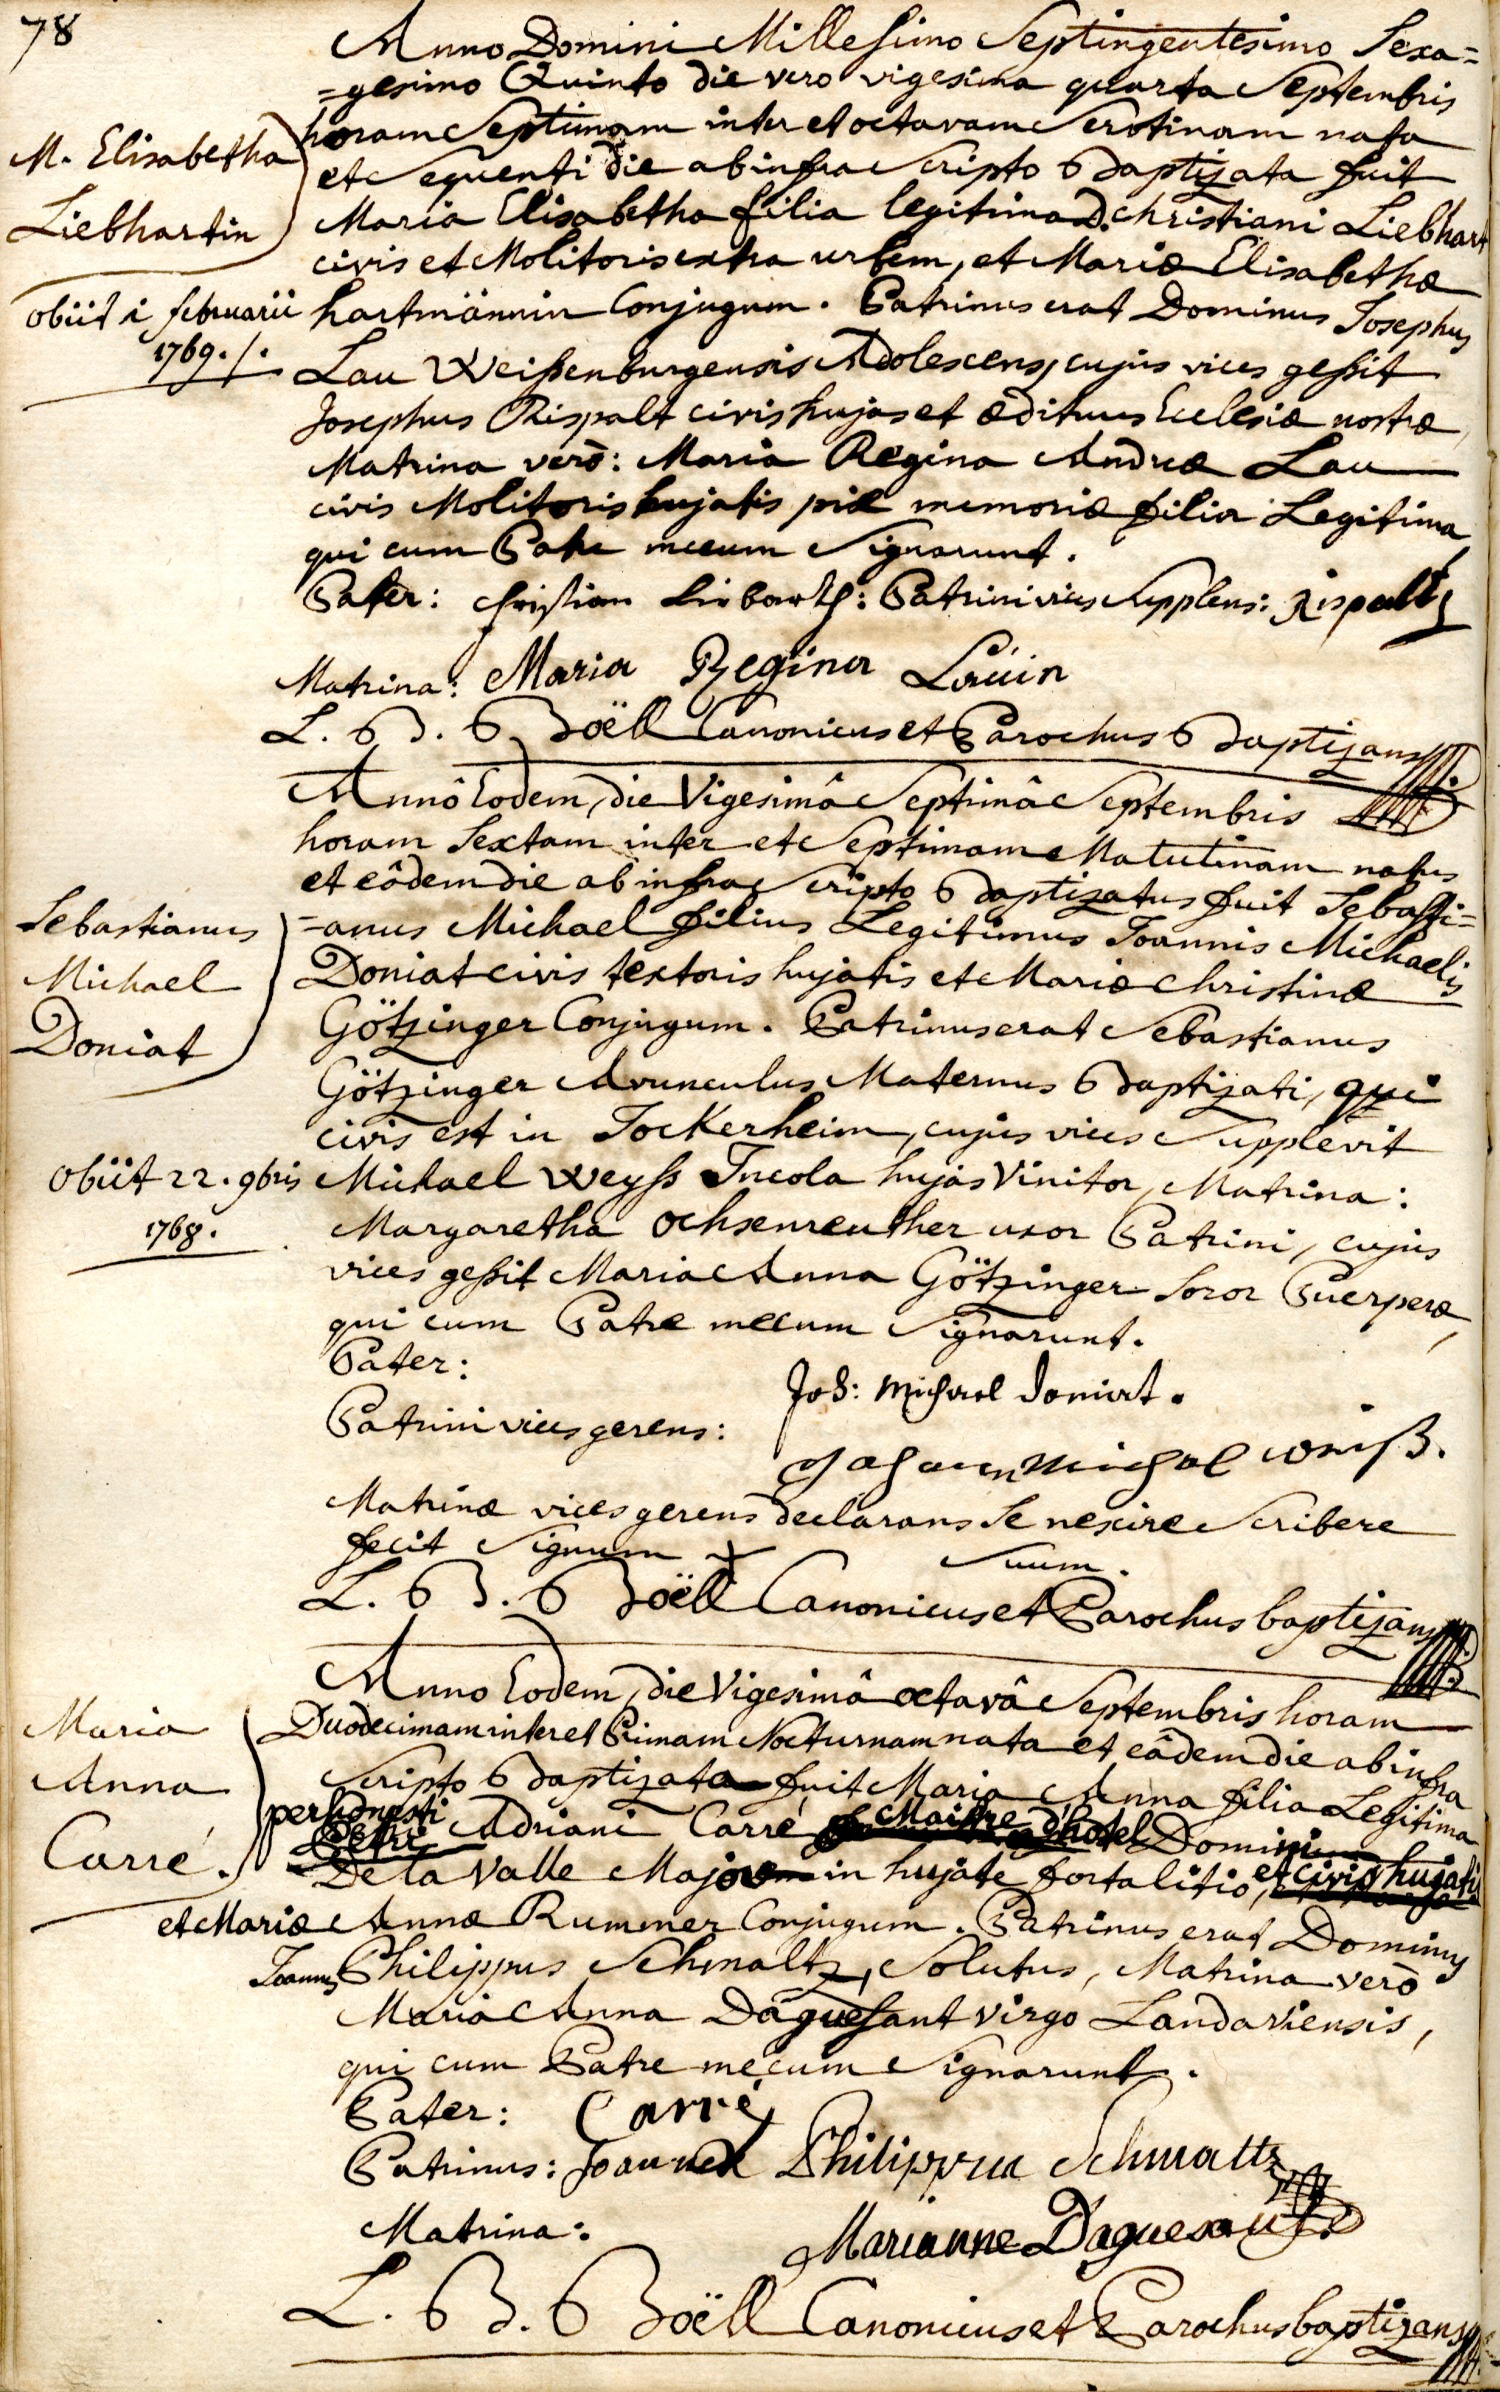 78
Anno Domini Millesimo Septingentesimo Sexa=
=gesimo Quinto die vero vigesima quarta Septembris
horam Septimam inter et octavam Serotinam nata
M. Elisabetha
Liebhartin
et Sequenti die ab infra Scripto Baptizata fuit
Maria Elisabetha filia legitima D. Christiani Liebhart
civis et Molitoris extra urbem, et Mariæ Elisabethæ
obiit 1 februarii
1769./.
hartmännin Conjugum. Patrinus erat Dominus Josephus
Lau Weißenburgensis Adolescens, cujus vices geßit
Josephus Rispalt civis hujas et ædituus Ecclesiæ nostræ,
Matrina verò: Maria Regina Andreæ Lau
civis Molitoris hujatis piæ memoriæ filia Legitima,
qui cum Patre mecum Signarunt.
Pater: Christian Liebarth: Patrini vices Supplens: Rispalt
Matrina: Maria Regina Lauin
L. B. Boëll Canonicus et Parochus Baptizans
Annô Eodem, die Vigesimâ Septimâ Septembris
horam Sextam inter et Septimam Matutinam natus
et eôdem die ab infra Scripto Baptizatus fuit Sebasti=
Sebastianus
Michael
Doniat
=anus Michael filius Legitimus Joannis Michaelis
Doniat civis textoris hujatis et Mariæ Christinæ
Götzinger Conjugum. Patrinus erat Sebastianus
Götzinger Avunculus Maternus Baptizati, qui
civis est in Jockerheim, cujus vices Supplevit
obiit 22. 9bris
1768.
Michael Weyss Incola hujas Vinitor, Matrina:
Margaretha Ochsenreuther uxor Patrini, cujus
vices geßit Maria Anna Götzinger Soror Puerperæ,
qui cum Patre mecum Signarunt.
Pater: Joh: Michael Doniat.
Patrini vices gerens: Johann Michael Weiß.
Matrinæ vices gerens declarans Se nescire Scribere
fecit Signum + Suum.
L. B. Boëll Canonicus et Parochus baptizans
Anno Eodem, die Vigesimâ octavâ Septembris horam
Maria
Anna
Carré.
Duodecimam inter et Primam Nocturnam nata et eâdem die ab infra
Scripto Baptizata fuit Maria Anna filia Legitima
perhonesti Petri Adriani Carré Maistre d'hotel Domini
De la Valle Majore in hujate fortalitio, et civis hujatis
et Mariæ Annæ Rummer Conjugum. Patrinus erat Dominus
Joannes Philippus Schmaltz, Solutus, Matrina verò
Maria Anna Daguesant virgo Landaviensis,
qui cum Patre mecum Signarunt.
Pater: Carré
Patrinus: Joannes Philippus Schmaltz
Matrina: Marianne Daguesant
L. B. Boëll Canonicus et Parochus baptizans